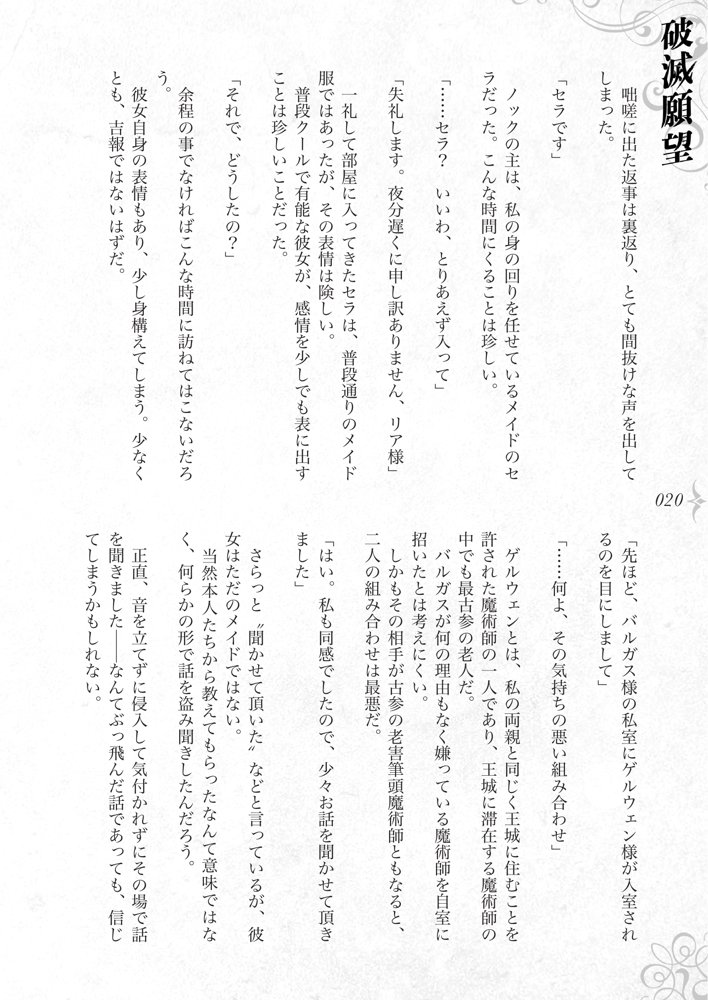 破滅願望
　咄嗟に出た返事は裏返り、とても間抜けな声を出して
しまった。
「セラです」
　ノックの主は、私の身の回りを任せているメイドのセ
ラだった。こんな時間にくることは珍しい。
「……セラ？　いいわ、とりあえず入って」
「失礼します。夜分遅くに申し訳ありません、リア様」
　一礼して部屋に入ってきたセラは、普段通りのメイド
服ではあったが、その表情は険しい。
　普段クールで有能な彼女が、感情を少しでも表に出す
ことは珍しいことだった。
「それで、どうしたの？」
　余程の事でなければこんな時間に訪ねてはこないだろ
う。
　彼女自身の表情もあり、少し身構えてしまう。少なく
とも、吉報ではないはずだ。
020
「先ほど、バルガス様の私室にゲルウェン様が入室され
るのを目にしまして」
「……何よ、その気持ちの悪い組み合わせ」
　ゲルウェンとは、私の両親と同じく王城に住むことを
許された魔術師の一人であり、王城に滞在する魔術師の
中でも最古参の老人だ。
　バルガスが何の理由もなく嫌っている魔術師を自室に
招いたとは考えにくい。
　しかもその相手が古参の老害筆頭魔術師ともなると、
二人の組み合わせは最悪だ。
「はい。私も同感でしたので、少々お話を聞かせて頂き
ました」
　さらっと〝聞かせて頂いた〟などと言っているが、彼
女はただのメイドではない。
　当然本人たちから教えてもらったなんて意味ではな
く、何らかの形で話を盗み聞きしたんだろう。
　正直、音を立てずに侵入して気付かれずにその場で話
を聞きました――なんてぶっ飛んだ話であっても、信じ
てしまうかもしれない。